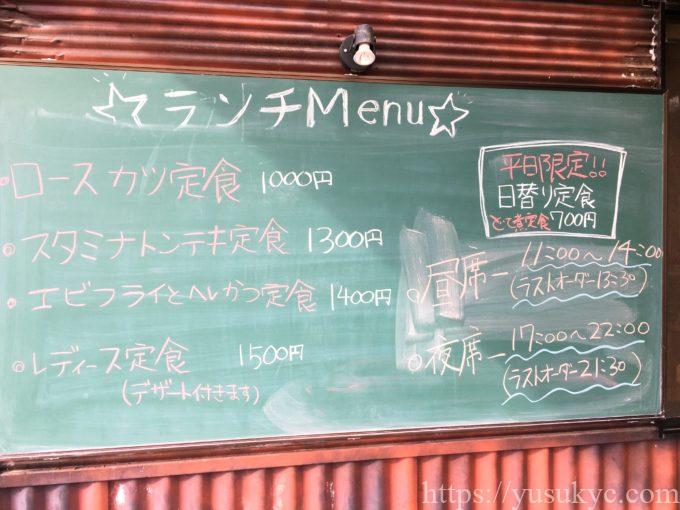 ☆ランチMenu☆
ロースカツ定食 1000円
スタミナトンテキ定食 1300円
エビフライとヘレかつ定食 1400円
レディース定食 1500円
(デザート付きます)
平日限定!!
日替り定食
とて書定食 700円
昼席ー 11:00〜14:00
(ラストオーダー13:30)
夜席ー 17:00〜22:00
(ラストオーダー21:30)
https://yusukyc.com